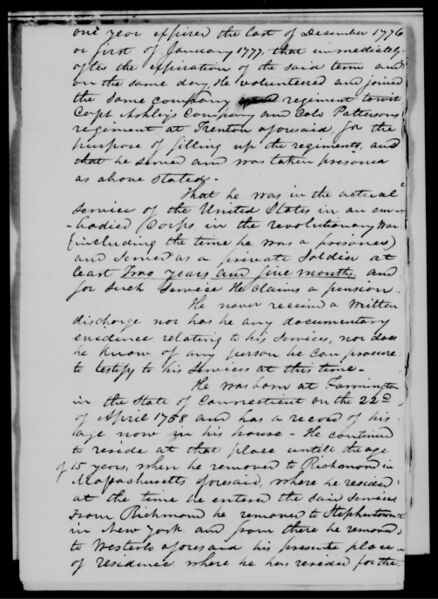 one year expired the last of December 1776
or first of January 1777. that immediately
after the expiration of the said term and
on the same day He volunteered and joined
the same company regiment towit
Capt Ashley's Company and Cols Pattersons
regiment at Trenton aforesaid, for the
purpose of filling up the regiments, and
that he served and was taken prisoner
as above stated.
That he was in the actual
service of the United States in an em-
-bodied Corps in the revolutionary War
(including the time he was a prisoner)
and served as a private soldier at
least two years and five months, and
for such service He claims a pension.
He never received a written
discharge nor has he any documentary
evidence relating to his services, nor does
he know of any person he can procure
to testify to his services at this time.
He was born at Farmington
in the State of Connecticut on the 22d
of April 1758 and has a record of his
age now in his house - He continued
to reside at that place untill the age
of 15 years, when he removed to Richmond in
Massachusetts aforesaid, where he resided
at the time he entered the said services
from Richmond he removed to Stephentown
in New York and from there he removed
to Westerlo aforesaid his present place
of residence where he has resided for the